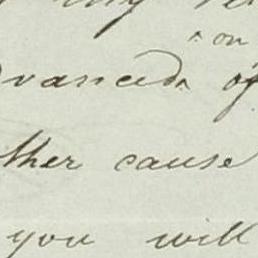 my
on
dvanced of
ther cause
you will